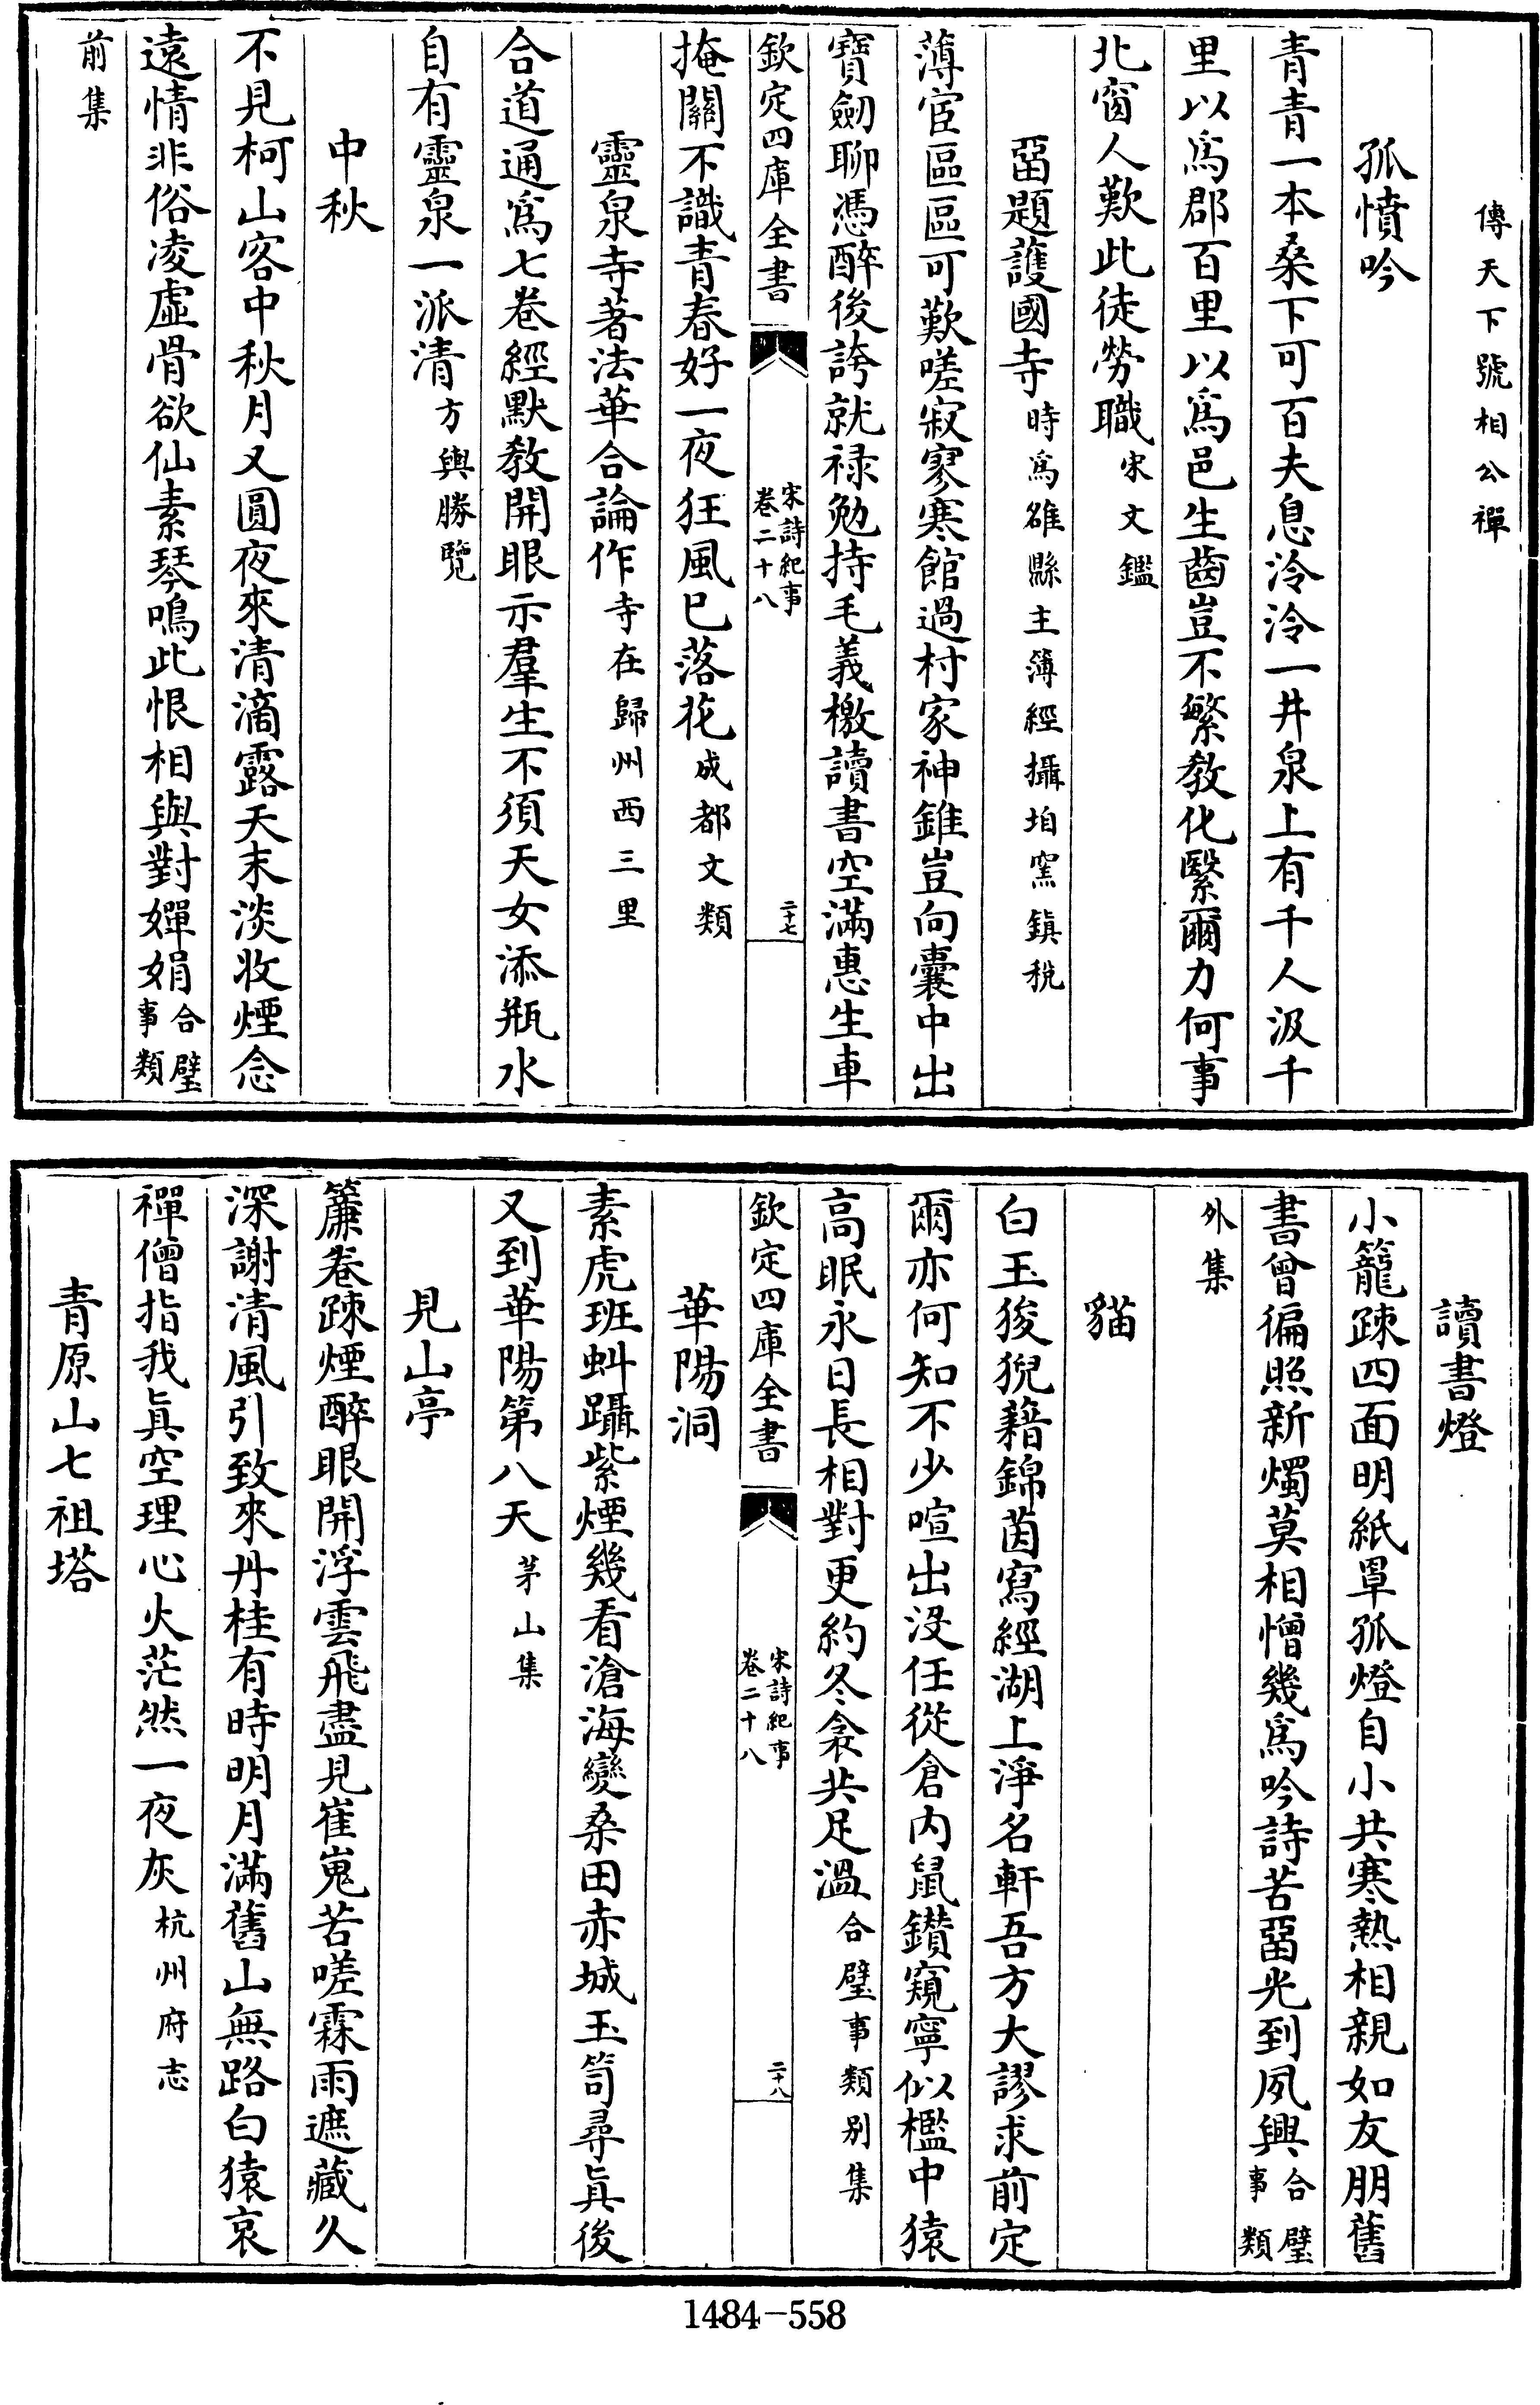 傳天下號相公禪
孤憤吟
青青一本桑下可百夫息泠泠一井泉上有千人汲千
里以爲郡百里以爲邑生齒豈不繁教化繄爾力何事
北窗人歎此徒勞職宋文鑑
畱題護國寺時爲雒縣主簿經攝垍窯鎮稅
薄宦區區可歎嗟寂寥寒館過村家神錐豈向囊中出
寶劒聊憑醉後誇就祿勉持毛義檄讀書空滿惠生車
欽定四庫全書
宋詩紀事
卷二十八
二十七
掩關不識青春好一夜狂風已落花成都文類
靈泉寺著法華合論作寺在歸州西三里
合道通爲七卷經默教開眼示羣生不須天女添瓶水
自有靈泉一派清方輿勝覽
中秋
不見柯山客中秋月又圓夜來清滴露天末淡收煙念
遠情非俗凌虛骨欲仙素琴鳴此恨相與對嬋娟合璧
事類
前集
讀書燈
小籠疎四面明紙罩孤燈自小共寒熱相親如友朋舊
書曾徧照新燭莫相憎幾爲吟詩苦畱光到夙興合璧
事類
外集
貓
白玉狻猊藉錦茵寫經湖上淨名軒吾方大謬求前定
爾亦何知不少喧出沒任從倉內鼠鑽窺寧似檻中猿
高眠永日長相對更約冬衾共足溫合璧事類别集
欽定四庫全書
宋詩紀事
卷二十八
二十八
華陽洞
素虎班虯躡紫煙幾看滄海變桑田赤城玉笥尋眞後
又到華陽第八天茅山集
見山亭
簾卷疎煙醉眼開浮雲飛盡見崔嵬苦嗟霖雨遮藏久
深謝清風引致來丹桂有時明月滿舊山無路白猿哀
禪僧指我眞空理心火茫然一夜灰杭州府志
青原山七祖塔
1484-558